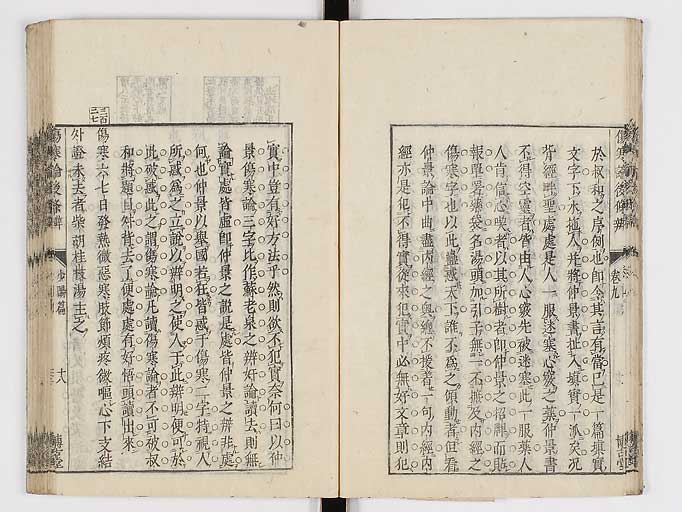 於叔和之序例也卽令其言有當已是一篇填實
文字下水撦人并將仲景書扯入填實一派矣况
背經畔聖處處是人一服迷寒心竅之藥仲景書
不得空靈者皆由人心竅先被迷塞此一服藥人
人肯信心喫者以其所樹者卽仲景之招牌而貼
報單畧藥袋名湯頭加引子無一不擬及内經之
傷寒字也以此蠱惑天下誰不爲之傾動者但看
仲景論中曲盡内經之奥纔不援着一句内經内
經亦是犯不得實從來犯實中必無好文章則犯
實中豈有好方法乎然則欲不犯實奈何曰以仲
景傷寒論三字比作蘇老泉之辨奸論讀去則無
論實處皆虛卽仲景之說是處皆仲景之辨非處
何也仲景以舉國若狂皆惑于傷寒二字特視人
所惑爲之立說以辨明之使人于此辨明便可於
此破惑此之謂傷寒論凡讀傷寒論者不可被叔
和將題目舛背去了便處處有好悟頭讀出來
三百二七
傷寒六七日發熱微惡寒肢節煩疼微嘔心下支結
外證未去者柴胡桂枝湯主之
傷寒論後條辨
少陽篇
卷九
博古堂